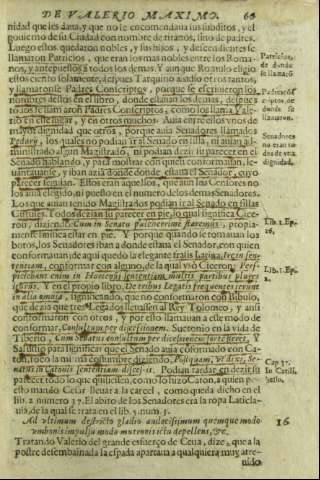 DE VALERIO MAXIMO. 60
nidad que les daua, y que no se encomendaua sus subditos, y el
gouierno de su Ciudad con nombre de tiranos, sino de padres.
Luego estos quedaron nobles, y sus hijos, y descendientes se
llamaron Patricios, que eran los mas nobles entre los Roma-
nos, y antepuestos à todos los demas. Y aunque Romulo eligio
estos ciento solamente, despues Tarquino añadio otros tantos,
y llamaronse Padres Conscriptos, porque se escriuieron los
nombres dellos en el libro, donde estauan los demas, despues
todos se llamaron Padres Conscriptos, como los llama Vale-
rio en este lugar, y en otros muchos. Auia entre ellos vnos de
mayor dignidad que otros, porque auia Senadores llamados
Pedarij, los quales no podian ir al Senado en silla, ni auian ad-
ministrado algun Magistrado, ni podian dezir su parecer en el
Senado hablando, y para mostrar con quien conformauan, le-
uantauanse, y iban azia donde estaua el Senador, cuyo
parecer seguian. Ellos eran aquellos, que aun los Censores no
los auia elegido, ni puesto en el numero de los demas Senadores.
Los que auian tenido Magistrados podian ir al Senado en sillas
Curules. Todos dezian su parecer en pie, lo qual significa Cice-
ron, diziendo. Cum in Senatu pulcherrime staremus, propia-
mente significa estar en pie. Y porque quando se tomauan los
botos, los Senadores iban a donde estaua el Senador, con quien
conformauan; de aqui quedò la elegante frasis Latina, Ire in sen-
tentiam, conformarse con alguno, de la qual vsò Ciceron;
in alia omnia, significando, que no conformaron con Bibulo,
que dezia que tres Legados lleuassen al Rey Tolomeo, y assi
conformaron con otros, y por esso llamauan a este modo de
conformar, Consultum per discessionem. Suetonio en la vida de
Tiberio, Cum Senatus consultum per discessionem fortè fieret, Y
Salustio para significar que el Senado auia conformado con Ca-
ton, tocò la misma costumbre, diziendo, Postquam, ut dixi, Se-
natus in Catonis sententiam discessit. Podian tardar en dezir su
parecer todo lo que quisiessen, como lo hizo Caton, a quien por
esto mandò Cesar lleuar a la carcel, como queda dicho en el
lib. 2. numero 37. El abito de los Senadores era la ropa Laticla-
uia, de la qual se trata en el lib. 5. num. 5.
Ad ultimum destricto gladio audacissimum quemque modo
umbonis impulsu modo mucronis ictu depellens, &c. 16
Tratando Valerio del grande esfuerço de Ceua, dize, que a la
postre desembainada la espada apartaua a qualquiera muy atre-
uido
Patricios,
de donde
se llamarō
Padres cōs
criptos, de
donde se
llamaron.
Senadores
no eran to
dos de vna
dignidad.
Lib. 1. Epi.
16.
Lib. 1. Epi.
Cap. 37.
In Catili.
bello.